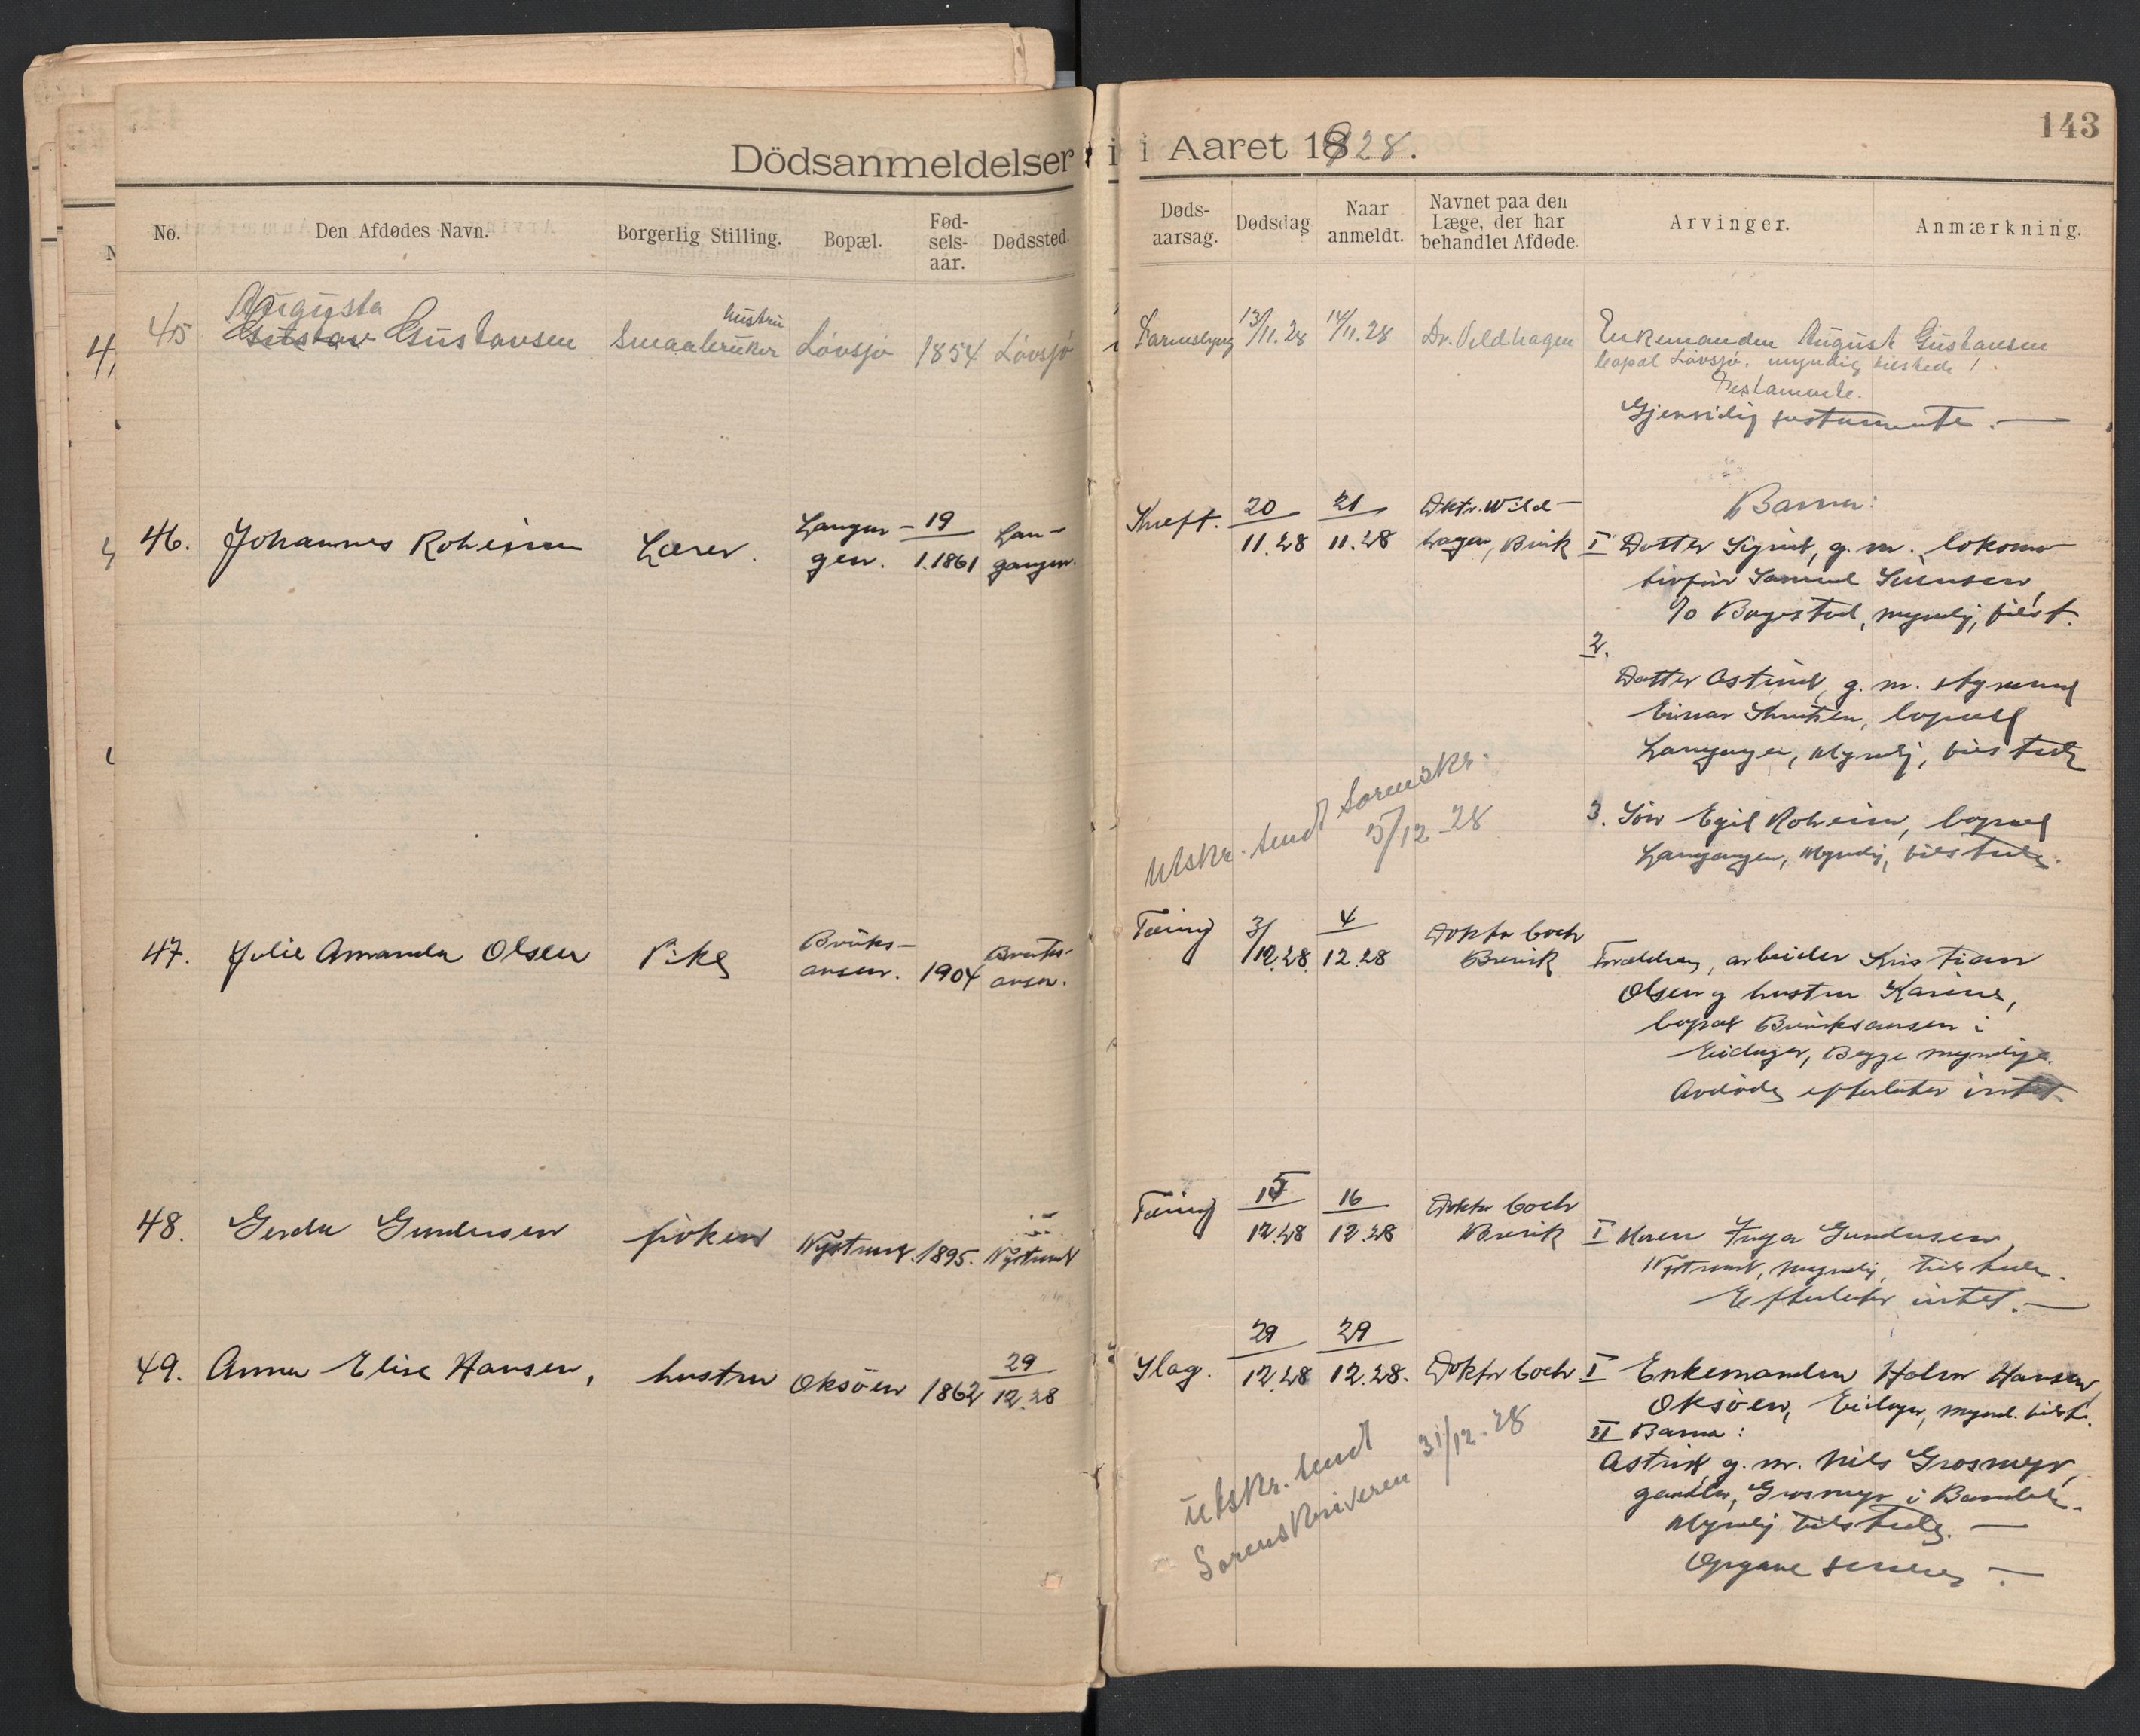 Dödsanmeldelser i i Aaret 1928.
143
No.
Den Afdødes Navn.
Borgerlig Stilling.
Bopæl.
Fød-
sels-
aar.
Dødssted.
Døds-
aarsag.
Dødsdag
Naar
anmeldt.
Navnet paa den
Læge, der har
behandlet Afdøde.
Arvinger.
Anmærkning.
45
Augusta
Gustav Gustavsen
hustru
Smaabruker
Lövsjö
1854
Lövsjö
Tarmslyng
13/11.28
14/11.28
Dr. Vildhagen
Enkemanden August Gustavsen
bopæl Lövsjö. myndig tilstede!
Testamente.
Gjensidig testamente. —
46.
Johannes Roheim
Lærer.
Langan-
gen.
19
1.1861
Lan-
gangen.
Kreft.
20
11.28
21
11.28
Dktr. Wild-
hagen, Brvik
Barn:
I Datter Sigrid, g. m. lokomo-
tivfør Samuel Svensen,
Bøgested, myndig, tilst.
2.
Datter Astrid, g. m. styrmand
Einar Knutsen, bopæl
Langangen, Myndig, tilstede
3. Sön Egil Roheim, bopæl
Langangen, Myndig, tilstede.
Utskr. sendt Sorenskr.
5/12-28
47.
Julie Amanda Olsen
Pike
Bruks-
aasen.
1904
Bruks-
aasen.
Tæring
3/12.28
4
12.28
Doktor Coch
Brevik
Foreldrene, arbeider Kristian
Olsen og hustru Karine,
bopæl Bruksaasen i
Eidanger, Begge myndige.
Avdöde efterlater intet.
48.
Gerda Gundersen
fröken
Nystrand.
1895.
Nystrand
Tæring
15
12.28
16
12.28
Doktor Coch
Brevik
I Moren Inga Gundersen,
Nystrand, myndig, tilstede.
Efterlater intet. —
49.
Anna Elise Hansen,
hustru
Oksöen
1862
29
12.28
Slag.
29
12.28
29
12.28.
Doktor Coch
I Enkemanden Halvor Hansen,
Oksöen, Eidanger, mynd. tilst.
II Barn:
Astrid, g. m. Nils Grosmyr,
Grosmyr i Bamble.
Myndig tilstede. —
Opgave senere —
Utskr. sendt
Sorenskriveren 31/12-28